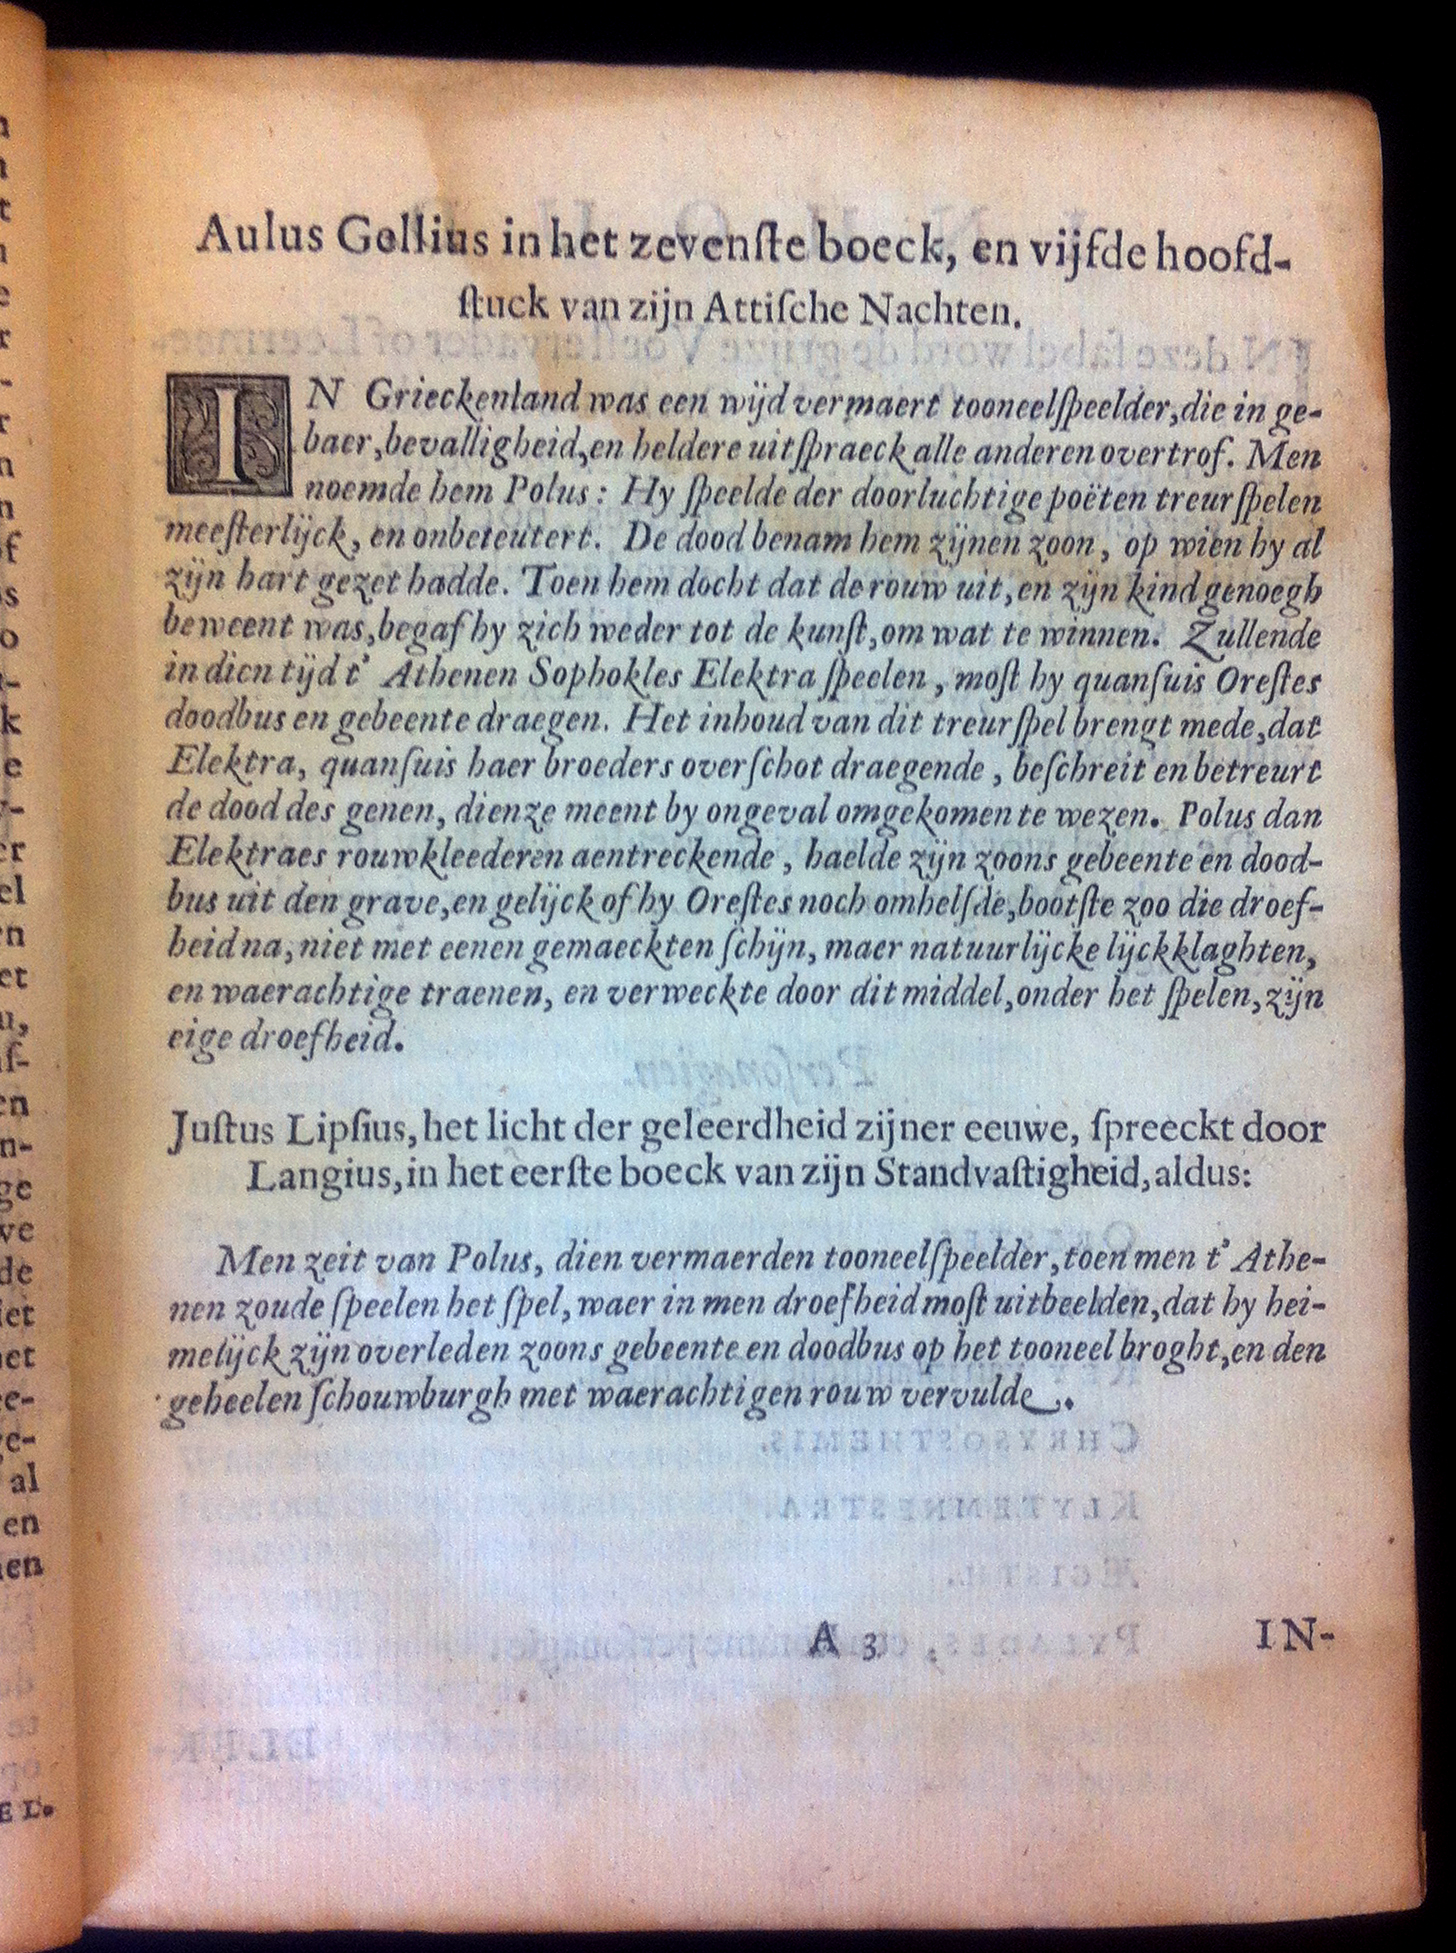 Aulus Gellius in het zevenſte boeck, en vijfde hoofd-
ſtuck van zijn Attiſche Nachten.
IN Grieckenland was een wijd vermaert tooneelſpeelder, die in ge-
baer, bevalligheid, en heldere uitſpraeck alle anderen overtrof. Men
noemde hem Polus: Hy ſpeelde der doorluchtige poëten treurſpelen
meeſterlijck, en onbeteutert. De dood benam hem zijnen zoon, op wien hy al
zijn hart gezet hadde. Toen hem docht dat de rouw uit, en zijn kind genoegh
beweent was, begaf hy zich weder tot de kunſt, om wat te winnen. Zullende
in dien tijd t' Athenen Sophokles Elektra ſpeelen, moſt hy quanſuis Oreſtes
doodbus en gebeente draegen. Het inhoud van dit treurſpel brengt mede, dat
Elektra, quanſuis haer broeders overſchot draegende, beſchreit en betreurt
de dood des genen, dienze meent by ongeval omgekomen te wezen. Polus dan
Elektraes rouwkleederen aentreckende, haelde zijn zoons gebeente en dood-
bus uit den grave, en gelijck of hy Oreſtes noch omhelſde, bootſte zoo die droef-
heid na, niet met eenen gemaeckten ſchijn, maer natuurlijcke lijckklaghten,
en waerachtige traenen, en verweckte door dit middel, onder het ſpelen, zijn
eige droefheid.
Juſtus Lipſius, het licht der geleerdheid zijner eeuwe, ſpreeckt door
Langius, in het eerſte boeck van zijn Standvaſtigheid, aldus:
Men zeit van Polus, dien vermaerden tooneelſpeelder, toen men t' Athe-
nen zoude ſpeelen het ſpel, waer in men droefheid moſt uitbeelden, dat hy hei-
melijck zijn overleden zoons gebeente en doodbus op het tooneel broght, en den
geheelen ſchouwburgh met waerachtigen rouw vervulde.
A 3 IN-